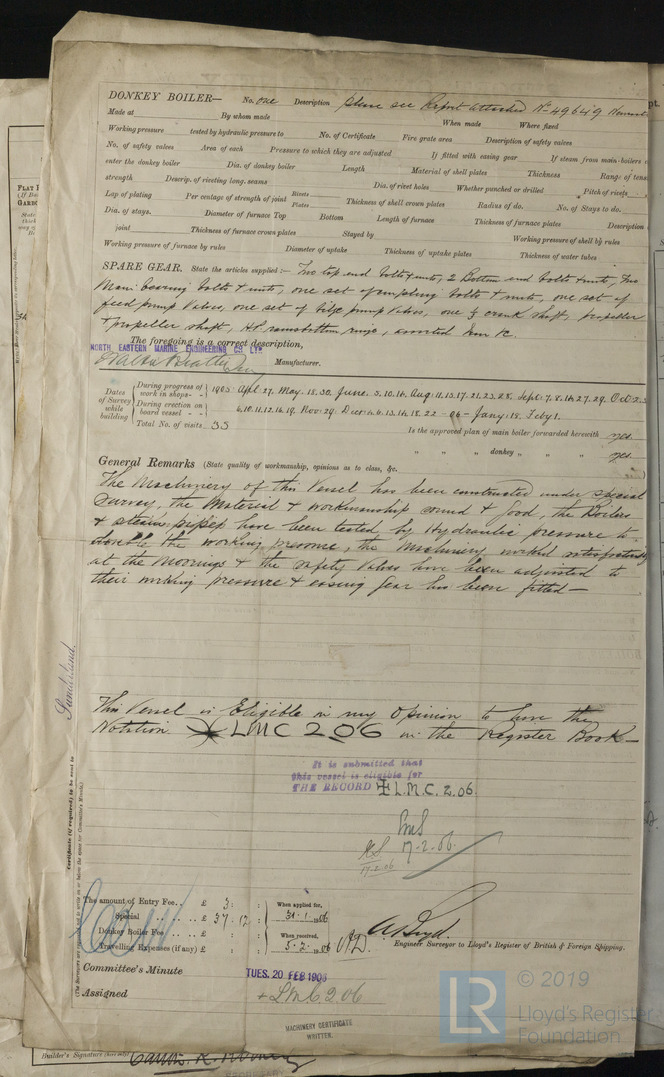 DONKEY BOILER— No. one Description please see Report attached No 49649
Made at By whom made When made Where fixed
Working pressure tested by hydraulic pressure to No. of Certificate Fire grate area Description of safety valves
No. of safety valves Area of each Pressure to which they are adjusted If fitted with easing gear If steam from main boilers
enter the donkey boiler Dia. of donkey boiler Length Material of shell plates Thickness Range of tens
strength Descrip. of riveting long. seams Dia. of rivet holes Whether punched or drilled Pitch of rivets
Lap of plating Per centage of strength of joint Rivets Plates Thickness of shell crown plates Radius of do. No. of Stays to do.
Dia. of stays. Diameter of furnace Top Bottom Length of furnace Thickness of furnace plates Description
joint Thickness of furnace crown plates Stayed by Working pressure of shell by rules
Working pressure of furnace by rules Diameter of uptake Thickness of uptake plates Thickness of water tubes
SPARE GEAR. State the articles supplied:— Two top end bolts & nuts, 2 Bottom end bolts & nuts, Two
Main bearing bolts & nuts, one set of coupling bolts & nuts, one set of
feed pump valves, one set of bilge pump valves, one ½ crank shaft, propeller
& propeller shaft, H.P. ramsbottom rings, assorted Iron &c.
The foregoing is a correct description,
NORTH EASTERN MARINE ENGINEERING CO. LTD.
Manufacturer.
Dates of Survey while building
During progress of work in shops - - 1905: Apl. 27. May. 18. 30. June. 5. 10. 16. Aug. 11. 15. 17. 21. 23. 28. Sept. 7. 8. 16. 27. 29. Oct. 2.
During erection on board vessel - - 6. 10. 11. 12. 16. 19. Nov. 29. Dec. 4. 6. 13. 16. 18. 22 - 06 - Jany. 18. Feby 1.
Total No. of visits 35
Is the approved plan of main boiler forwarded herewith yes
" " " donkey " " " yes
General Remarks (State quality of workmanship, opinions as to class, &c.
The Machinery of this Vessel has been constructed under special
Survey, the Material & workmanship sound & good, the Boilers
& steam pipes have been tested by Hydraulic pressure to
double the working pressure, the Machinery worked satisfactorily
at the Moorings & the safety valves have been adjusted to
their working pressure & easing gear has been fitted—
Sunderland
This Vessel is Eligible in my Opinion to have the
Notation LMC 2.06 in the Register Book—
It is submitted that
this vessel is eligible for
THE RECORD + L.M.C. 2.06.
17.2.06
17.2.06
Certificate (if required) to be sent to
The amount of Entry Fee.. £ 3 : :
Special .. .. .. £ 37 : 12 :
Donkey Boiler Fee .. .. £ : :
Travelling Expenses (if any) £ : :
When applied for,
31.1.1906
When received,
5.2.1906
Engineer Surveyor to Lloyd's Register of British & Foreign Shipping.
Committee's Minute TUES. 20 FEB 1906
Assigned + LMC 2.06
MACHINERY CERTIFICATE
WRITTEN.
© 2019
LR
Lloyd's Register
Foundation
Builder's Signature